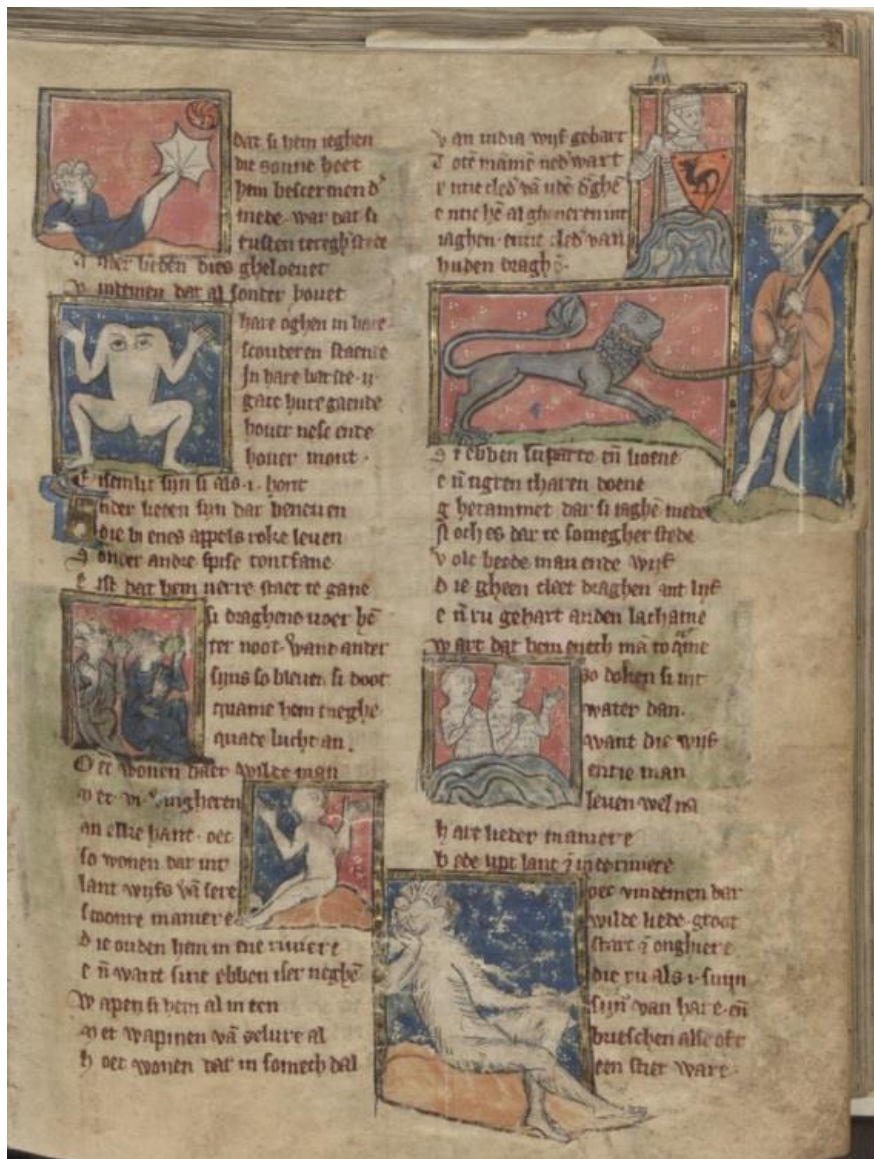 dat si hem ieghen
die sonne heet
hem bescermen d'
mede. war dat si
rusten teregh' stede
Ander lieden dies gheloeuet
Vindemen dat al sonder houet
hare oghen in hare
scouderen staende
In hare borste .ij.
gate
houer nese ende
houer mont.
Eiselijc sijn si als .i. hont
Ander lieden sijn dar beneuen
die bi enes appels roke leuen
Sonder andre spise tontfane
Eist dat hem verre staet te gane
si draghene voer he
ter noot. want ander
sijns so bleuen si doot
quame hem tieghe
quade lucht an.
Oec wonen daer wilde man
Met .vi. vingheren
an elke hant. oec
so wonen dar int
lant wijfs va sere
scoonre maniere
die ouden hem in ene riuiere
en want sine ebben iser neghe
Wapen si hem al in een
Met wapinen va selure al
hoet wonen dar in somech dal
Van india wijf gebart
Tote mame nedwart
entie
iaghen. entie cled' van
huden dragh.
Si ebben luparte en lioene
en tigren tharen doene
ghetammet dar si iaghe mede
Noch es dar te somegher stede
Volc beede man ende wijf
die gheen cleet draghen ant lijf
en ru gehart anden lachame
Wart dat hem enech ma to qame
so doken si int
water dan.
want die wijf
entie man
leuen wel na
hare lieder maniere
bede upt lant in teriuiere
oec vindemen dar
wilde liede. groot
start onghiere
die ru als .i. suijn
sijn van hare. en
brieschen alse oft
een stier ware.